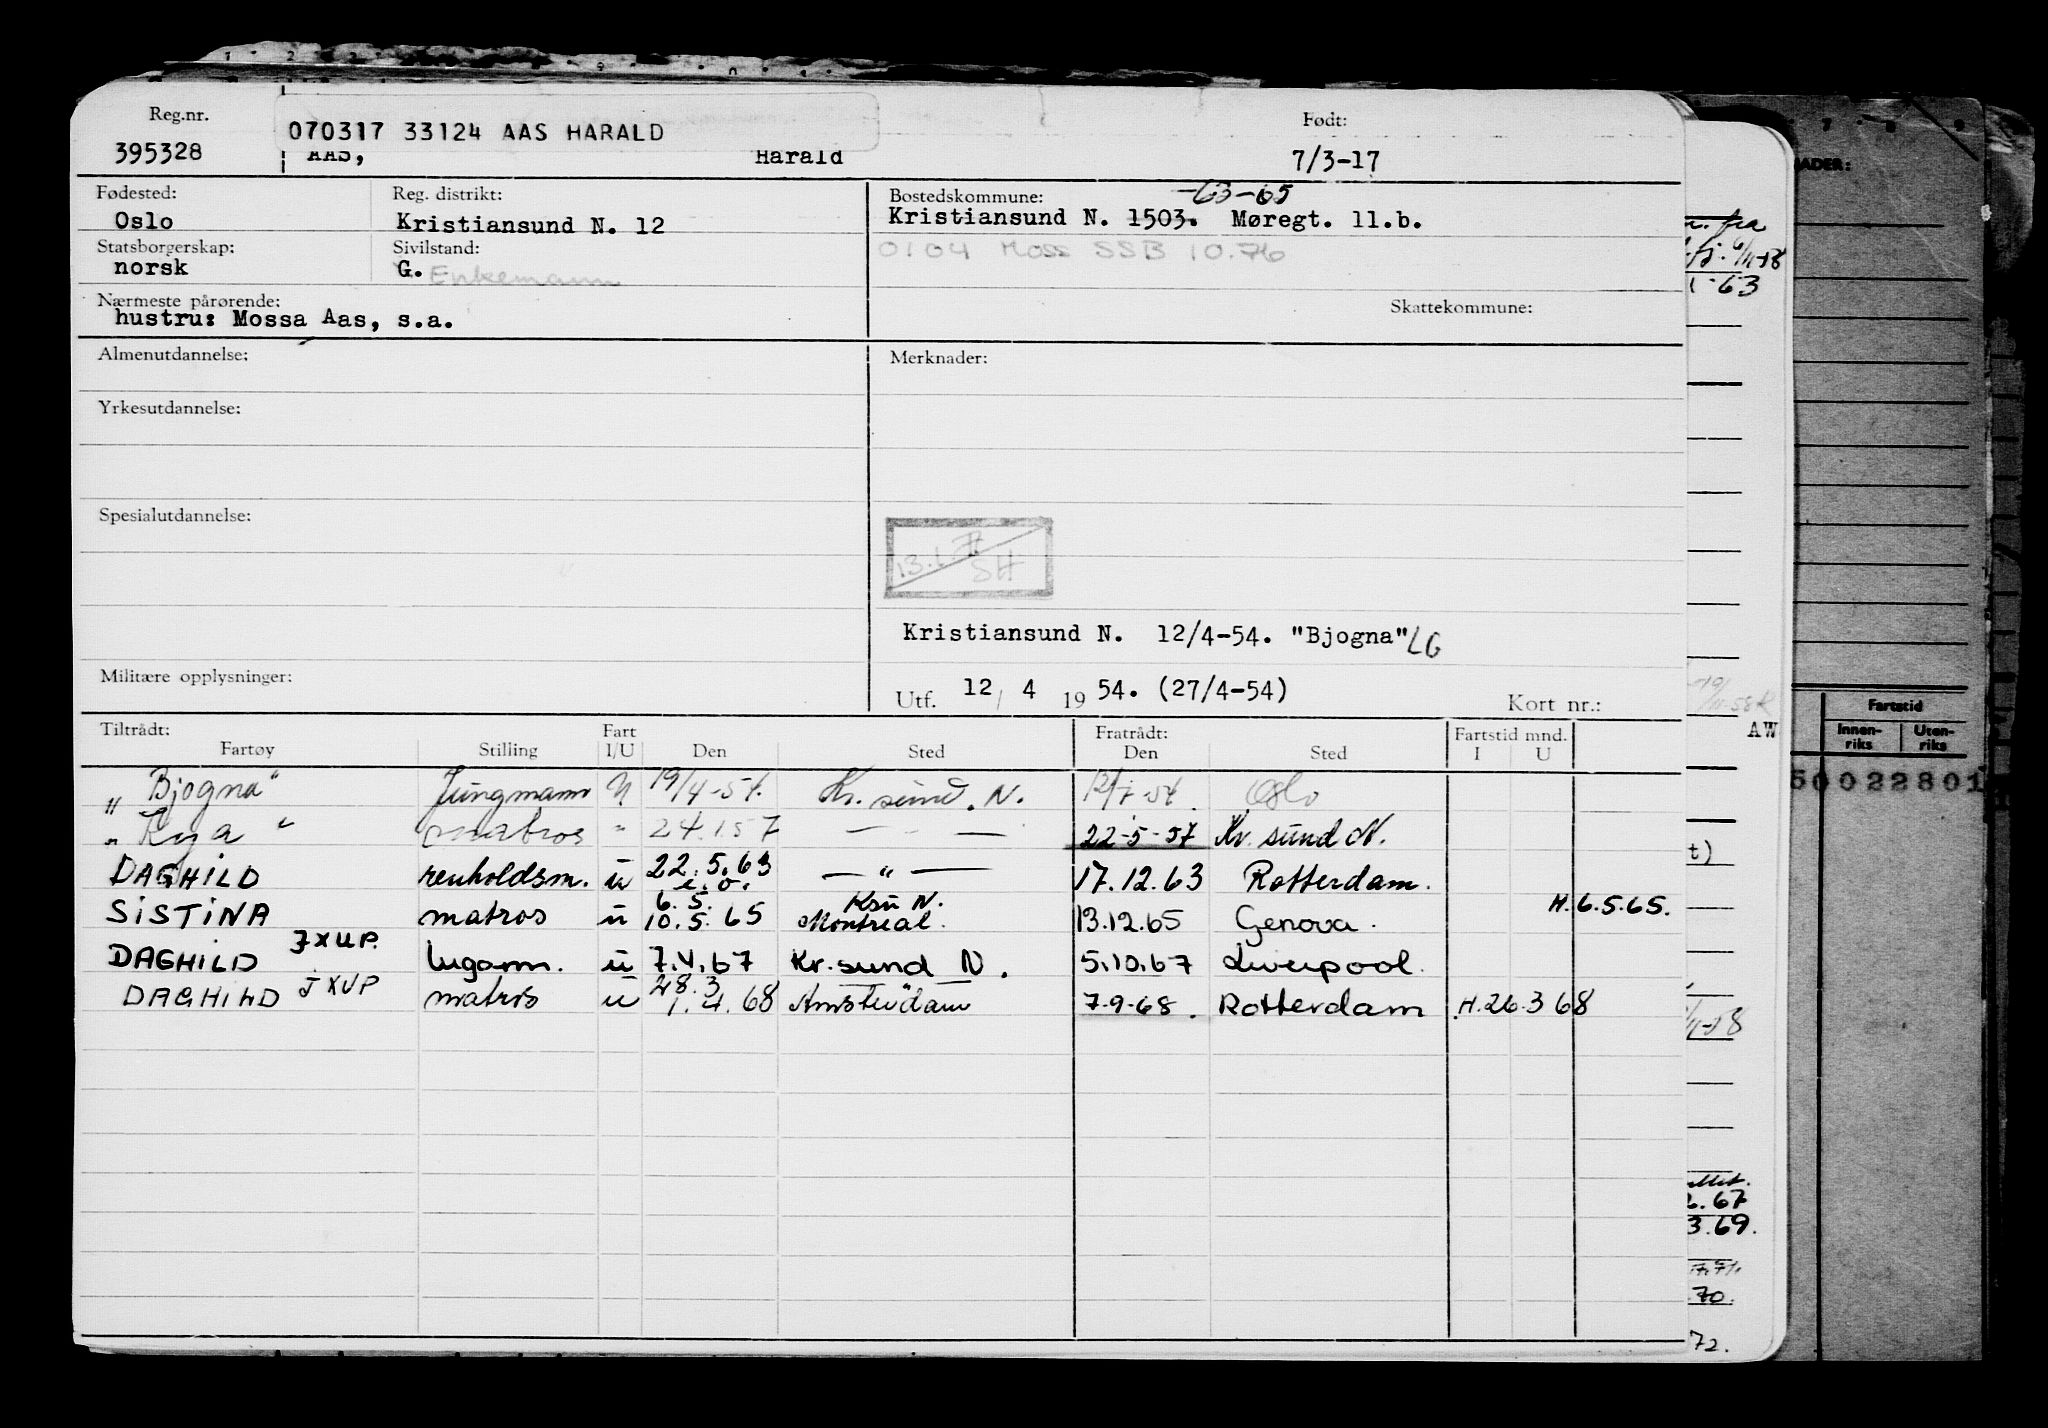 Reg.nr.
395328
070317 33124 AAS HARALD
AAS, Harald
Født:
7/3-17
Fødested:
Oslo
Reg. distrikt:
Kristiansund N. 12
Bostedskommune: -63-65
Kristiansund N. 1503. Møregt. 11.b.
0104 Moss SSB 10.76
Statsborgerskap:
norsk
Sivilstand:
G. Enkemann
Nærmeste pårørende:
hustru: Mossa Aas, s.a.
Skattekommune:
Almenutdannelse:
Merknader:
Yrkesutdannelse:
Spesialutdannelse:
SH
Kristiansund N. 12/4-54. "Bjogna" LG
Militære opplysninger:
Utf. 12/ 4 1954. (27/4-54)
Kort nr.:
Tiltrådt: Fart Fratrådt: Fartstid mnd.
Fartøy Stilling I/U Den Sted Den Sted I U
"Bjogna" Jungmann U 19/4-54. Kr. sund. N. 12/7-54. Oslo
"Rya" matros " 24.1.57 — " — 22-5-57 Kr. sund N.
DAGHILD renholdsm. u 22.5.63 — " — 17.12.63 Rotterdam.
6.5. Ksu N. H. 6.5.65.
SISTINA matros u 10.5.65 Montreal. 13.12.65 Genova.
DAGHILD JXUP. lugarm. u 7.4.67 Kr. sund N. 5.10.67 Liverpool.
28.3
DAGHILD JXUP matros u 1.4.68 Amsterdam 7-9-68. Rotterdam H. 26.3 68
fra
-63
AW
t)
.67
3.69.
.70.
72.
7 8 9
Fartstid
Innen-
riks
Uten-
riks
50022801